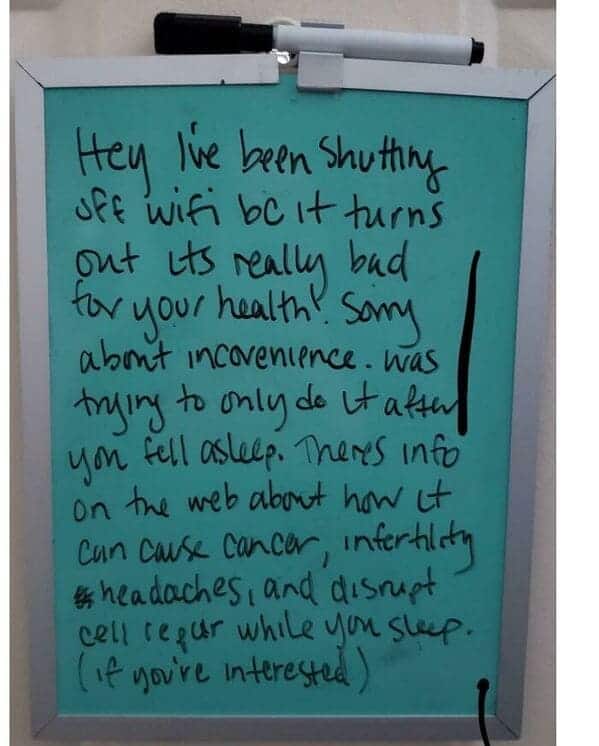 Hey I've been shutting
off wifi bc it turns
out its really bad
for your health! Sorry
about incovenience. was
trying to only do it after
you fell asleep. Theres info
on the web about how it
can cause cancer, infertility
headaches, and disrupt
cell repair while you sleep.
(if you're interested)